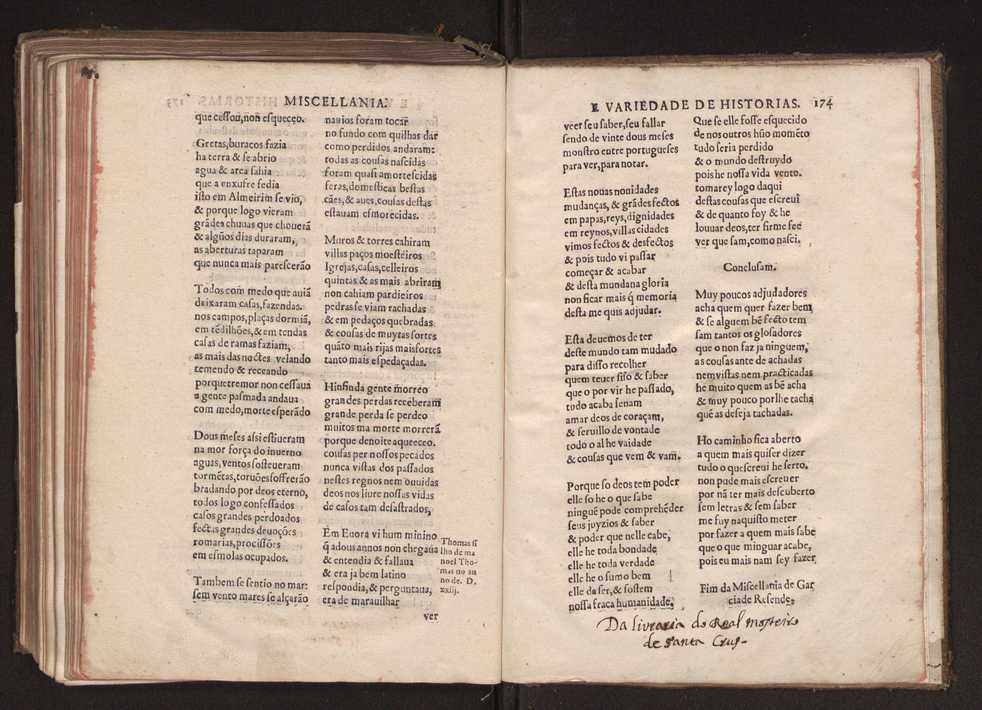 MISCELLANIA.
que cessou, non esqueceo.
Gretas, buracos fazia
ha terra & se abrio
agua & area sahia
que a enxufre fedia
isto em Almeirim se vio,
& porque logo vieram
grãdes chuuas que chouerã
& algũos dias duraram,
as aberturas taparam
que nunca mais parescerão
Todos com medo que auiã
deixaram casas, fazendas.
nos campos, plaças dormiã,
em tẽdilhões, & em tendas
casas de ramas faziam,
as mais das noctes velando
temendo & receando
porque tremor non cessaua
a gente pasmada andaua
com medo, morte esperãdo
Dous meses assi estiueram
na mor força do inuerno
aguas, ventos sosteueram
tormẽtas, toruões soffrerão
bradando por deos eterno,
todos logo confessados
casos grandes perdoados
fectas grandes deuoções
romarias, procissões
em esmolas ocupados.
Tambem se sentio no mar:
sem vento mares se alçarão
nauios foram tocar
no fundo com quilhas dar
como perdidos andaram:
todas as cousas nascidas
foram quasi amortescidas
feras, domesticas bestas
cães, & aues, cousas destas
estauam esmorecidas.
Muros & torres cahiram
villas paços moesteiros
Igrejas, casas, celleiros
quintas & as mais abriram
non cahiam pardieiros
pedras se viam rachadas
& em pedaços quebradas
& cousas de muytas sortes
quãto mais rijas mais fortes
tanto mais espedaçadas.
Hinfinda gente morreo
grandes perdas receberam
grande perda se perdeo
muitos ma morte morrerã
porque de noite aqueeceo.
cousas per nossos pecados
nunca vistas dos passados
nestes regnos nem ouuidas
deos nos liure nossas vidas
de casos tam desastrados,
Em Euora vi hum minino
q̃ a dous annos non chegaua
& entendia & fallaua
& era ja bem latino
respondia, & perguntaua,
era de marauilhar
ver
Thomas fi
lho de ma
noel Tho-
mas no an
no de. D.
xxiij.
E VARIEDADE DE HISTORIAS. 174
veer seu saber, seu fallar
sendo de vinte dous meses
monstro entre portugueses
para ver, para notar.
Estas nouas nouidades
mudanças, & grãdes fectos
em papas, reys, dignidades
em reynos, villas cidades
vimos fectos & desfectos
& pois tudo vi passar
começar & acabar
& desta mundana gloria
non ficar mais q̃ memoria
desta me quis adjudar.
Esta deuemos de ter
deste mundo tam mudado
para disso recolher
quem teuer siso & saber
que o por vir he passado,
tudo acaba senam
amar deos de coraçam,
& seruillo de vontade
todo o al he vaidade
& cousas que vem & vam.
Porque so deos tem poder
elle so he o que sabe
ninguẽ pode comprehẽder
seus juyzios & saber
& poder que nelle cabe,
elle he toda bondade
elle he toda verdade
elle he o sumo bem
elle da ser, & sostem
nossa fraca humanidade,
Que se elle fosse esquecido
de nos outros hũo momẽto
tudo seria perdido
& o mundo destruydo
pois he nossa vida vento.
tomarey logo daqui
destas cousas que escreui
& de quanto foy & he
louuar deos, ter firme fee
ver que sam, como nasci.
Conclusam.
Muy poucos adjudadores
acha quem quer fazer bem,
& se alguem bẽ fecto tem
sam tantos os glosadores
que o non faz ja ninguem,
as cousas ante de achadas
nem vistas nem practicadas
he muito quem as bẽ acha
& muy pouco por lhe tacha
quẽ as deseja tachadas.
Ho caminho fica aberto
a quem mais quiser dizer
tudo o que screui he serto,
non pude mais escreuer
por nã ter mais descuberto
sem letras & sem saber
me fuy naquisto meter
por fazer a quem mais sabe
que o que minguar acabe,
pois eu mais nam sey fazer
Fim da Miscellania de Gar
cia de Resende.
Da livraria do Real Mosteiro
de Santa Cruz.